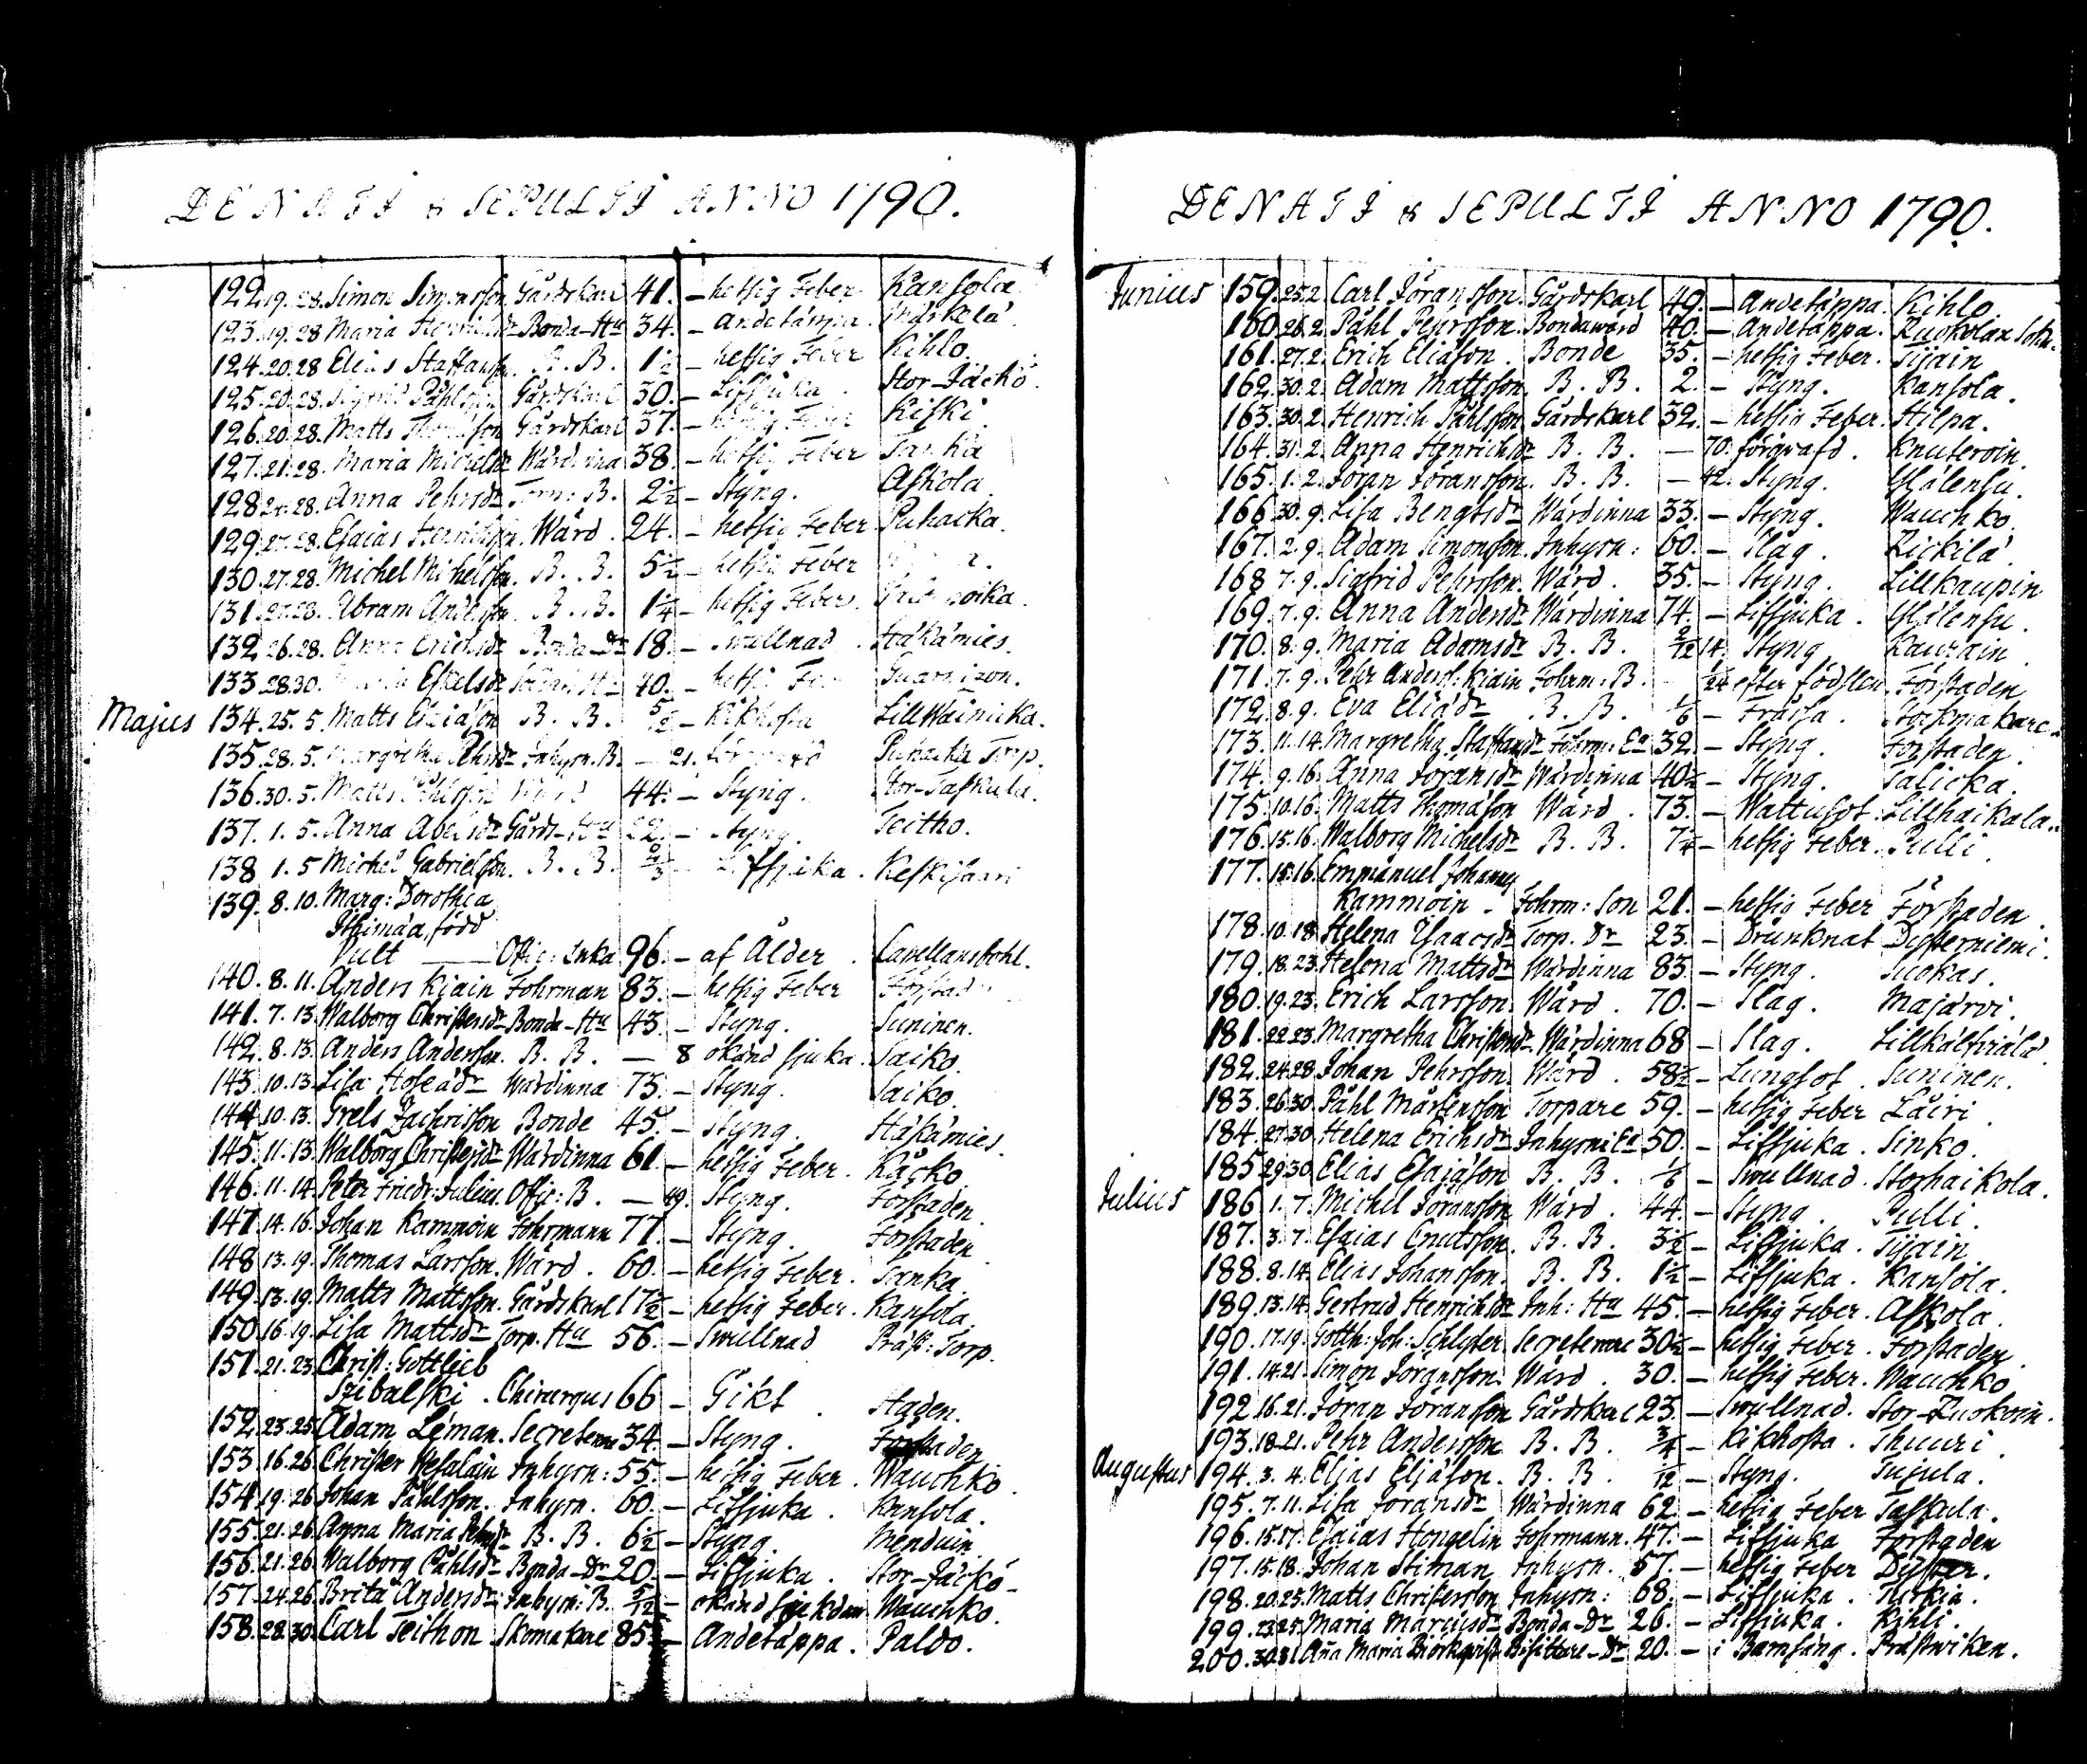 DENATI & SEPULTI ANNO 1790.
122. 19. 28. Simon Simonsson. Gårdskarl 41. – hetsig Feber Kansola
123. 19. 28 Maria Bonda-Hu 34. – andetäppa. Märkelä
124. 20. 28 Elias Staffansson. B. B. 1½ – hetsig Feber Kihlo.
125. 20. 28. Sigfrid Påhlsson Gårdskarl 30. – Lifsjuka. Stor-Jäckö.
126. 20. 28. Matts Gårdskarl 37. – hetsig Feber Kiski.
127. 21. 28. Maria Michelsdr Wärdinna 38. – hetsig Feber Tanka
128. 28. Anna Pehrsdr Torp: B. 2½ – Styng. Askola
129. 27. 28. Esaias Henrichsson. Wärd. 24. – hetsig Feber Puhacka.
130. 27. 28. Michel Michelsson. B. B. 5½ – hetsig Feber
131. 27. 28. Abram Andersson B. B. 1¼ – hetsig Feber.
132. 26. 28. Anna Erichsdr Bonda-Dr 18. – Swullnad. Häkämies.
133. 28. 30. Eskelsdr 40. – hetsig Feber Guarnizon.
Majus 134. 25. 5. Matts Esaiäson B. B. – Kikhosta Lill Wainicka.
135. 28. 5. Margretha Pehrsdr Inhysn. B. – 21. Puhacka Torp.
136. 30. 5. Matts Wärd 44. – Styng. Stor-Taskula.
137. 1. 5. Anna Abelsdr Gårds-Hu 22. – Styng. Teitho.
138 1. 5 Michel Gabrielsson. B. B. – Lifsjuka. Keskisaari
139. 8. 10. Marg: Dorothea
Ithimäa, född
Pult — Offic: Enka 96. – af Ålder. Capellansbohl.
140. 8. 11. Anders Kiain Fohrman 83. – hetsig Feber Förstaden
141. 7. 13. Walborg Christersdr Bonda-Hu 43. – Styng. Suninen.
142. 8. 13. Anders Andersson. B. B. — 8 okänd sjuka. Saiko.
143. 10. 13. Lisa Hoseädr Wärdinna 73. – Styng. Saiko.
144. 10. 13. Grels Zachrisson Bonde 45. – Styng. Häkämies.
145. 11. 13. Walborg Christersdr Wärdinna 61. – hetsig Feber. Räcko
146. 11. 14. Peter Friedr: Julius. Offic: B. — 49. Styng. Forstaden.
147. 14. 16. Johan Kammoin Fohrmann 77. – Styng. Forstaden
148 13. 19. Thomas Larsson. Wärd. 60. – hetsig Feber. Tanka.
149. 13. 19. Matts Mattsson. Gårdskarl 17½ – hetsig Feber. Kansola.
150. 16. 19. Lisa Mattsdr Torp. Hu 56. – Swullnad Präst: Torp.
151. 21. 23. Christ: Gottlieb
Szibalski. Chirurgus 66 – Gikt. Staden.
152. 23. 25. Adam Léman. Secreterare 34. – Styng. Forstaden
153 16. 26. Christer Hesalain Inhysn: 55. – hetsig Feber. Wauchko.
154. 19. 26. Johan Påhlsson. Inhysn. 60. – Lifsjuka. Kansola.
155. 21. 26. Anna Maria Pehrsdr B. B. 6½ – Styng. Menduin.
156. 21. 26. Walborg Påhlsdr Bonda-Dr 20. – Lifsjuka. Stor-Jäckö.
157. 24. 26. Brita Andersdr Inhysn: B. 5/12 – okänd sjukdom Wauchko.
158. 28. 30. Carl Teithon Skomakare 85. – Andetäppa. Paldo.
DENATI & SEPULTI ANNO 1790.
Junius 159. 25. 2. Carl Jöransson. Gårdskarl 49. – Andetäppa. Kihlo.
160. 26. 2. Påhl Pehrsson. Bondewärd 40. – Andetäppa. Kuokolax Sokn.
161. 27. 2. Erich Eliäson. Bonde 35. – hetsig Feber. Tijain
162. 30. 2. Adam Mattsson. B. B. 2. – Styng. Kansola.
163. 30. 2. Henrich Påhlsson. Gårdskarl 32. – hetsig Feber. Hilpa.
164. 31. 2. Anna Henrichsdr B. B. – 70. förqvafd. Knuteroin.
165. 1. 2. Jöran Jöransson. B. B. – 42. Styng. Ylälensu.
166. 30. 9. Lisa Bengtsdr Wärdinna 33. – Styng. Wauchko.
167. 2. 9. Adam Simonsson. Inhysn: 60. – Slag. Kickilä.
168 7. 9. Sigfrid Pehrsson. Wärd. 35. – Styng. Lillkaupin
169. 7. 9. Anna Andersdr Wärdinna 74. – Lifsjuka. Ylälensu.
170. 8. 9. Maria Adamsdr B. B. 2/12 14. Styng. Kauzain
171. 7. 9. Pehr Anders. Kiain Fohrm. B. – 1/24 efter födslen. Förstaden
172. 8. 9. Eva Eliädr B. B. 1/6 – Fråssa. Stockmakare.
173. 11. 14. Margretha Staffansdr Fohrm: Ea 32. – Styng. Forstaden.
174. 9. 16. Anna Joransdr Wärdinna 40½ – Styng. Salicka.
175. 10. 16. Matts Thomäson Wärd. 73. – Wattusot. Lillhaikala.
176. 15. 16. Walborg Michelsdr B. B. 7¼ – hetsig Feber. Pulli.
177. 15. 16. Emmanuel Johannes
Kammoin. Fohrm: Son 21. – hetsig Feber Förstaden.
178. 10. 18. Helena Isaacsdr Torp. Dr 23. – Drunknat Dysterniemi.
179. 18. 23. Helena Mattsdr Wärdinna 83. – Styng. Suokas.
180. 19. 23. Erich Larsson. Wärd. 70. – Slag. Majärvi.
181. 22. 23. Margretha Christersdr Wärdinna 68 – Slag. Lillkälfviälä.
182. 24. 28 Johan Pehrsson. Wärd. 58½ – Lungsot. Suninen.
183. 26. 30 Påhl Mårtensson Torpare 59. – hetsig Feber Läiri
184. 27. 30 Helena Erichsdr Inhysn: Ea 50. – Lifsjuka. Sinko.
185 29. 30. Elias Esajäson B. B. 1/6 – Swullnad. Storhaikola.
Julius 186 1. 7. Michel Jöransson Wärd. 44. – Styng. Pulli.
187. 3. 7. Esaias Cnutsson. B. B. 3½ – Lifsjuka. Tijain
188. 8. 14. Elias Johansson. B. B. 1½ – Lifsjuka. Kansola.
189. 13. 14. Gertrud Henrichsdr Inh: Hu 45. – hetsig Feber. Askola.
190. 17. 19. Gotth: Joh: Schlyster Secreterare 30½ – hetsig Feber. Forstaden
191. 14. 21. Simon Jöransson. Wärd. 30. – hetsig Feber. Wauchko
192 16. 21. Jöran Jöransson Gårdskarl 23. – Swullnad. Stor-Kuokoin.
193. 18. 21. Pehr Andersson B. B. ¾ – Kikhosta. Thuuri
Augustus 194. 3. 4. Elias Eljäson. B. B. – Styng. Tujula.
195. 7. 11. Lisa Joransdr Wärdinna 62. – hetsig Feber Taskula.
196. 15. 17. Esaias Hongelin Fohrmann. 47. – Lifsjuka Forstaden
197. 15. 18. Johan Stiman Inhysn. 57. – hetsig Feber Dyster.
198. 20. 25. Matts Christersson Inhysn: 68. – Lifsjuka. Turkia.
199. 23. 25. Maria Marcusdr Bonda-Dr 26. – Lifsjuka. Kihli.
200. 30. 31. Aña Maria Biörkqvist Bisittare-Dr 20. – i Barnsäng. Prästwiken.